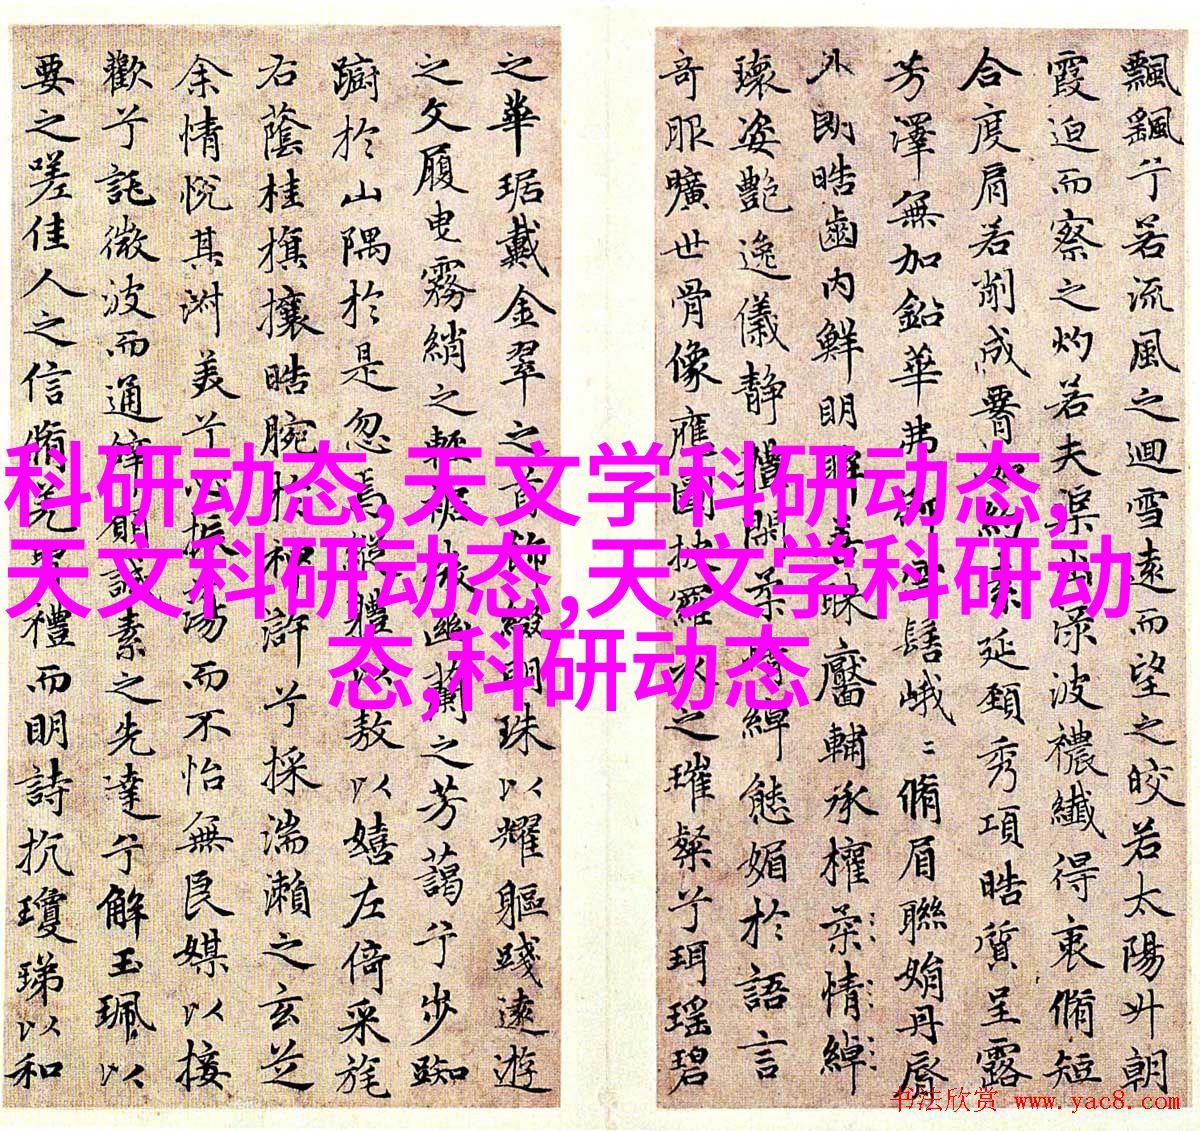 飄飖兮若流風之迴雪遠而望之皎若太陽升朝
霞迫而察之灼若夫渠出淥波襛纖得衷脩短
合度肩若削成約素延頸秀項皓質呈露
芳澤無加鉛華弗御髻峨〻脩眉聯娟丹脣
外朗皓齒內鮮明眸善睞靨輔承權柔情綽
瓌姿艷逸儀靜體閑柔情綽態媚於語言
奇服曠世骨像應圖披羅衣之璀粲兮珥瑤碧
之華琚戴金翠之首飾綴明珠以耀軀踐遠遊
之文履曳霧綃之輕裾微幽蘭之芳藹兮步踟
躕於山隅於是忽焉縱體以敖以嬉左倚采旄
右蔭桂旗攘皓腕於神滸兮採湍瀨之玄芝
余情悅其淑美兮心振蕩而不怡無良媒以接
歡兮託微波而通辭願誠素之先達兮解玉珮以
要之嗟佳人之信脩羌習禮而明詩抗瓊珶以和
科研动态,天文学科研动态,
天文科研动态,天文学科研动
态,科研动态
书法欣赏 www.yac8.com